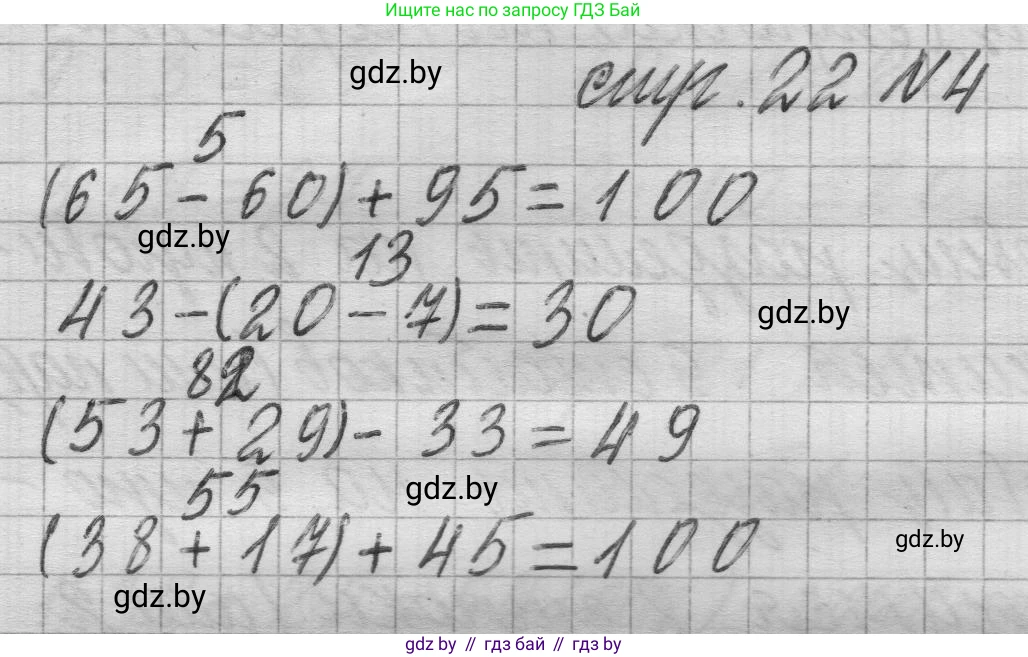 Ищите нас по запросу ГДЗ Бай
gdz.by
стр. 22 №4
5
(65 - 60) + 95 = 100
gdz.by
13
43 - (20 - 7) = 30
gdz.by
82
(53 + 29) - 33 = 49
55
gdz.by
(38 + 17) + 45 = 100
gdz.by
gdz.by
gdz.by // гдз бай // гдз by